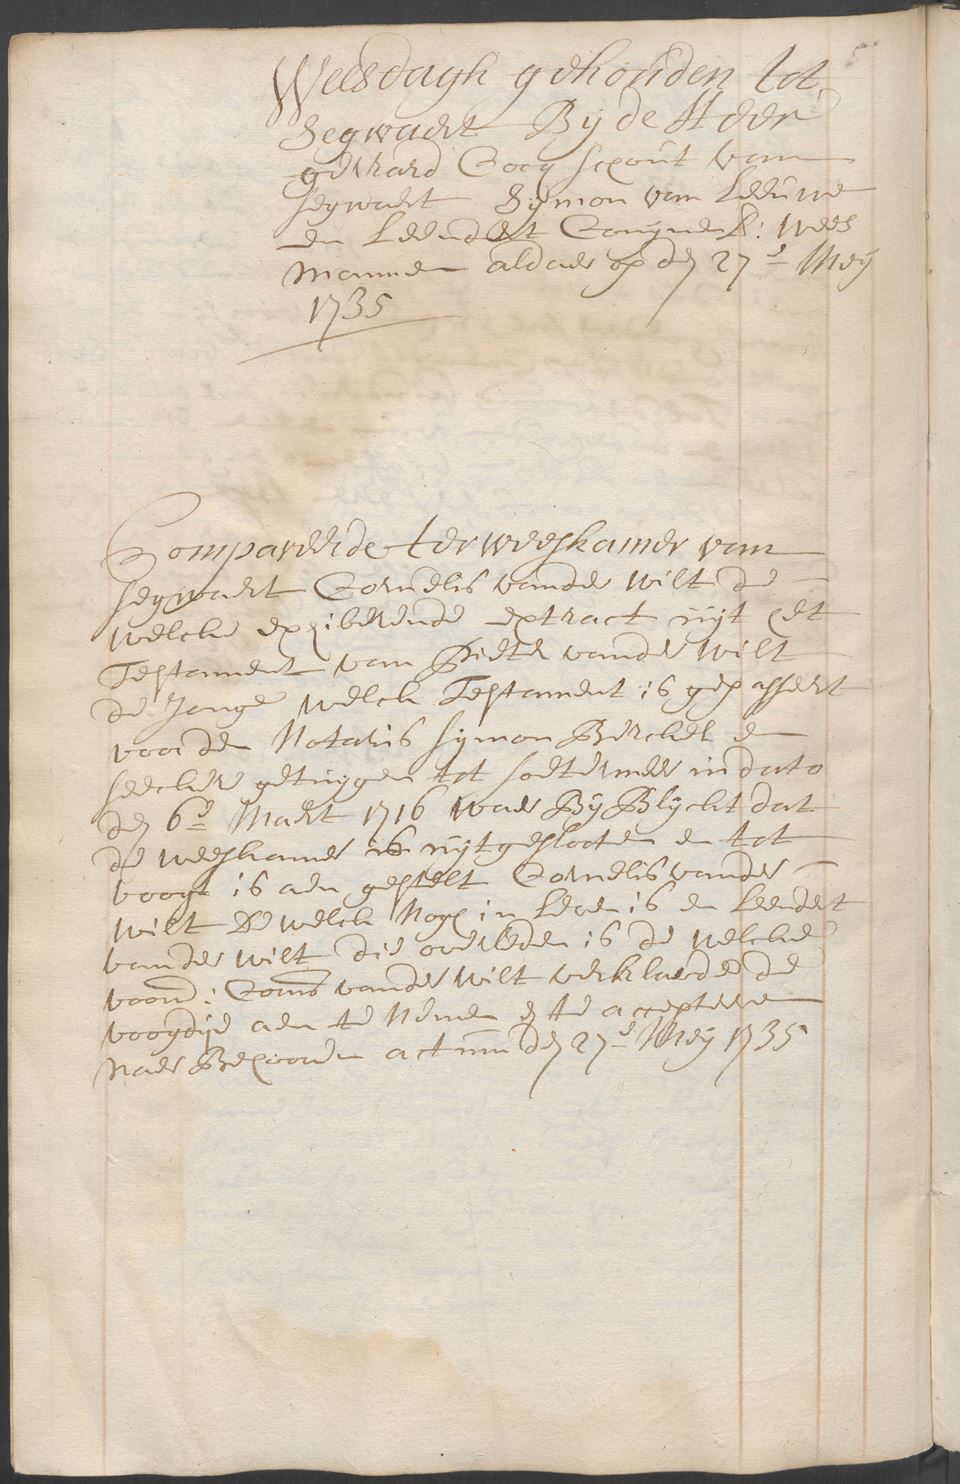 Weesdagh gehouden tot
Segwaert Bij de Heer
gerhard Cocq schout van
segwaert Sijmon van Leeuwe
en Leendert wees
mannen aldaer op den 27e Meij
1735
Compareerde ter weeskamer van
segwaert Cornelis vander Wilt de
welcke exhiberende extract uijt het
Testament van Pieter vander Wilt
de Jonge welck Testament is gepasseert
voor den Notaris Sijmon Berckel en
seeckere getuijgen tot soetermeer in dato
den 6e Maert 1716 waer Bij Blijckt dat
de weeskamer is uijtgeslooten en tot
voogt is aen gestelt Cornelis vander
Wilt De welck Nogh in Leven is en Leendert
vander Wilt die overleden is de welcke
voorn: Corns vander Wilt verklaerde de
voogdije aen te Nemen en te accepteren
naer Behooren actum den 27e Meij 1735